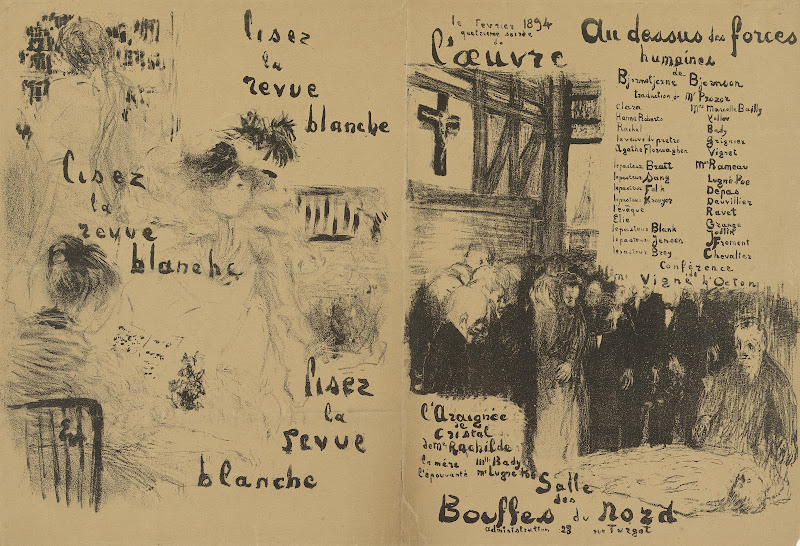 lisez
la
revue
blanche
lisez
la
revue
blanche
lisez
la
revue
blanche
le fevrier 1894
quatrieme soirée
de
l'œuvre
Au dessus des forces
humaines
de
Bjornstjerne Bjornson
traduction de Mr Prozor
Clara Mmes Marcelle Bailly
Hanna Roberts Yellov
Rachel Bady
la veuve du pretre Grignier
Agathe Florwaghen Vignet
le pasteur Bratt Mrs Rameau
le pasteur Sang Lugné Poe
le pasteur Falk Depas
le pasteur Kroeyer Dauvillier
l'évêque Ravet
Elie Grange
le pasteur Blank
le pasteur Jensen Froment
le pasteur Brey Chevalier
Conférence
de
Mr Vigné d'Octon
l'Araignée
de
Cristal
de Me Rachilde
la mère Mlle Bady
l'épouvanté Mr Lugné Poe
Salle
des
Bouffes du Nord
administration 23 rue Turgot